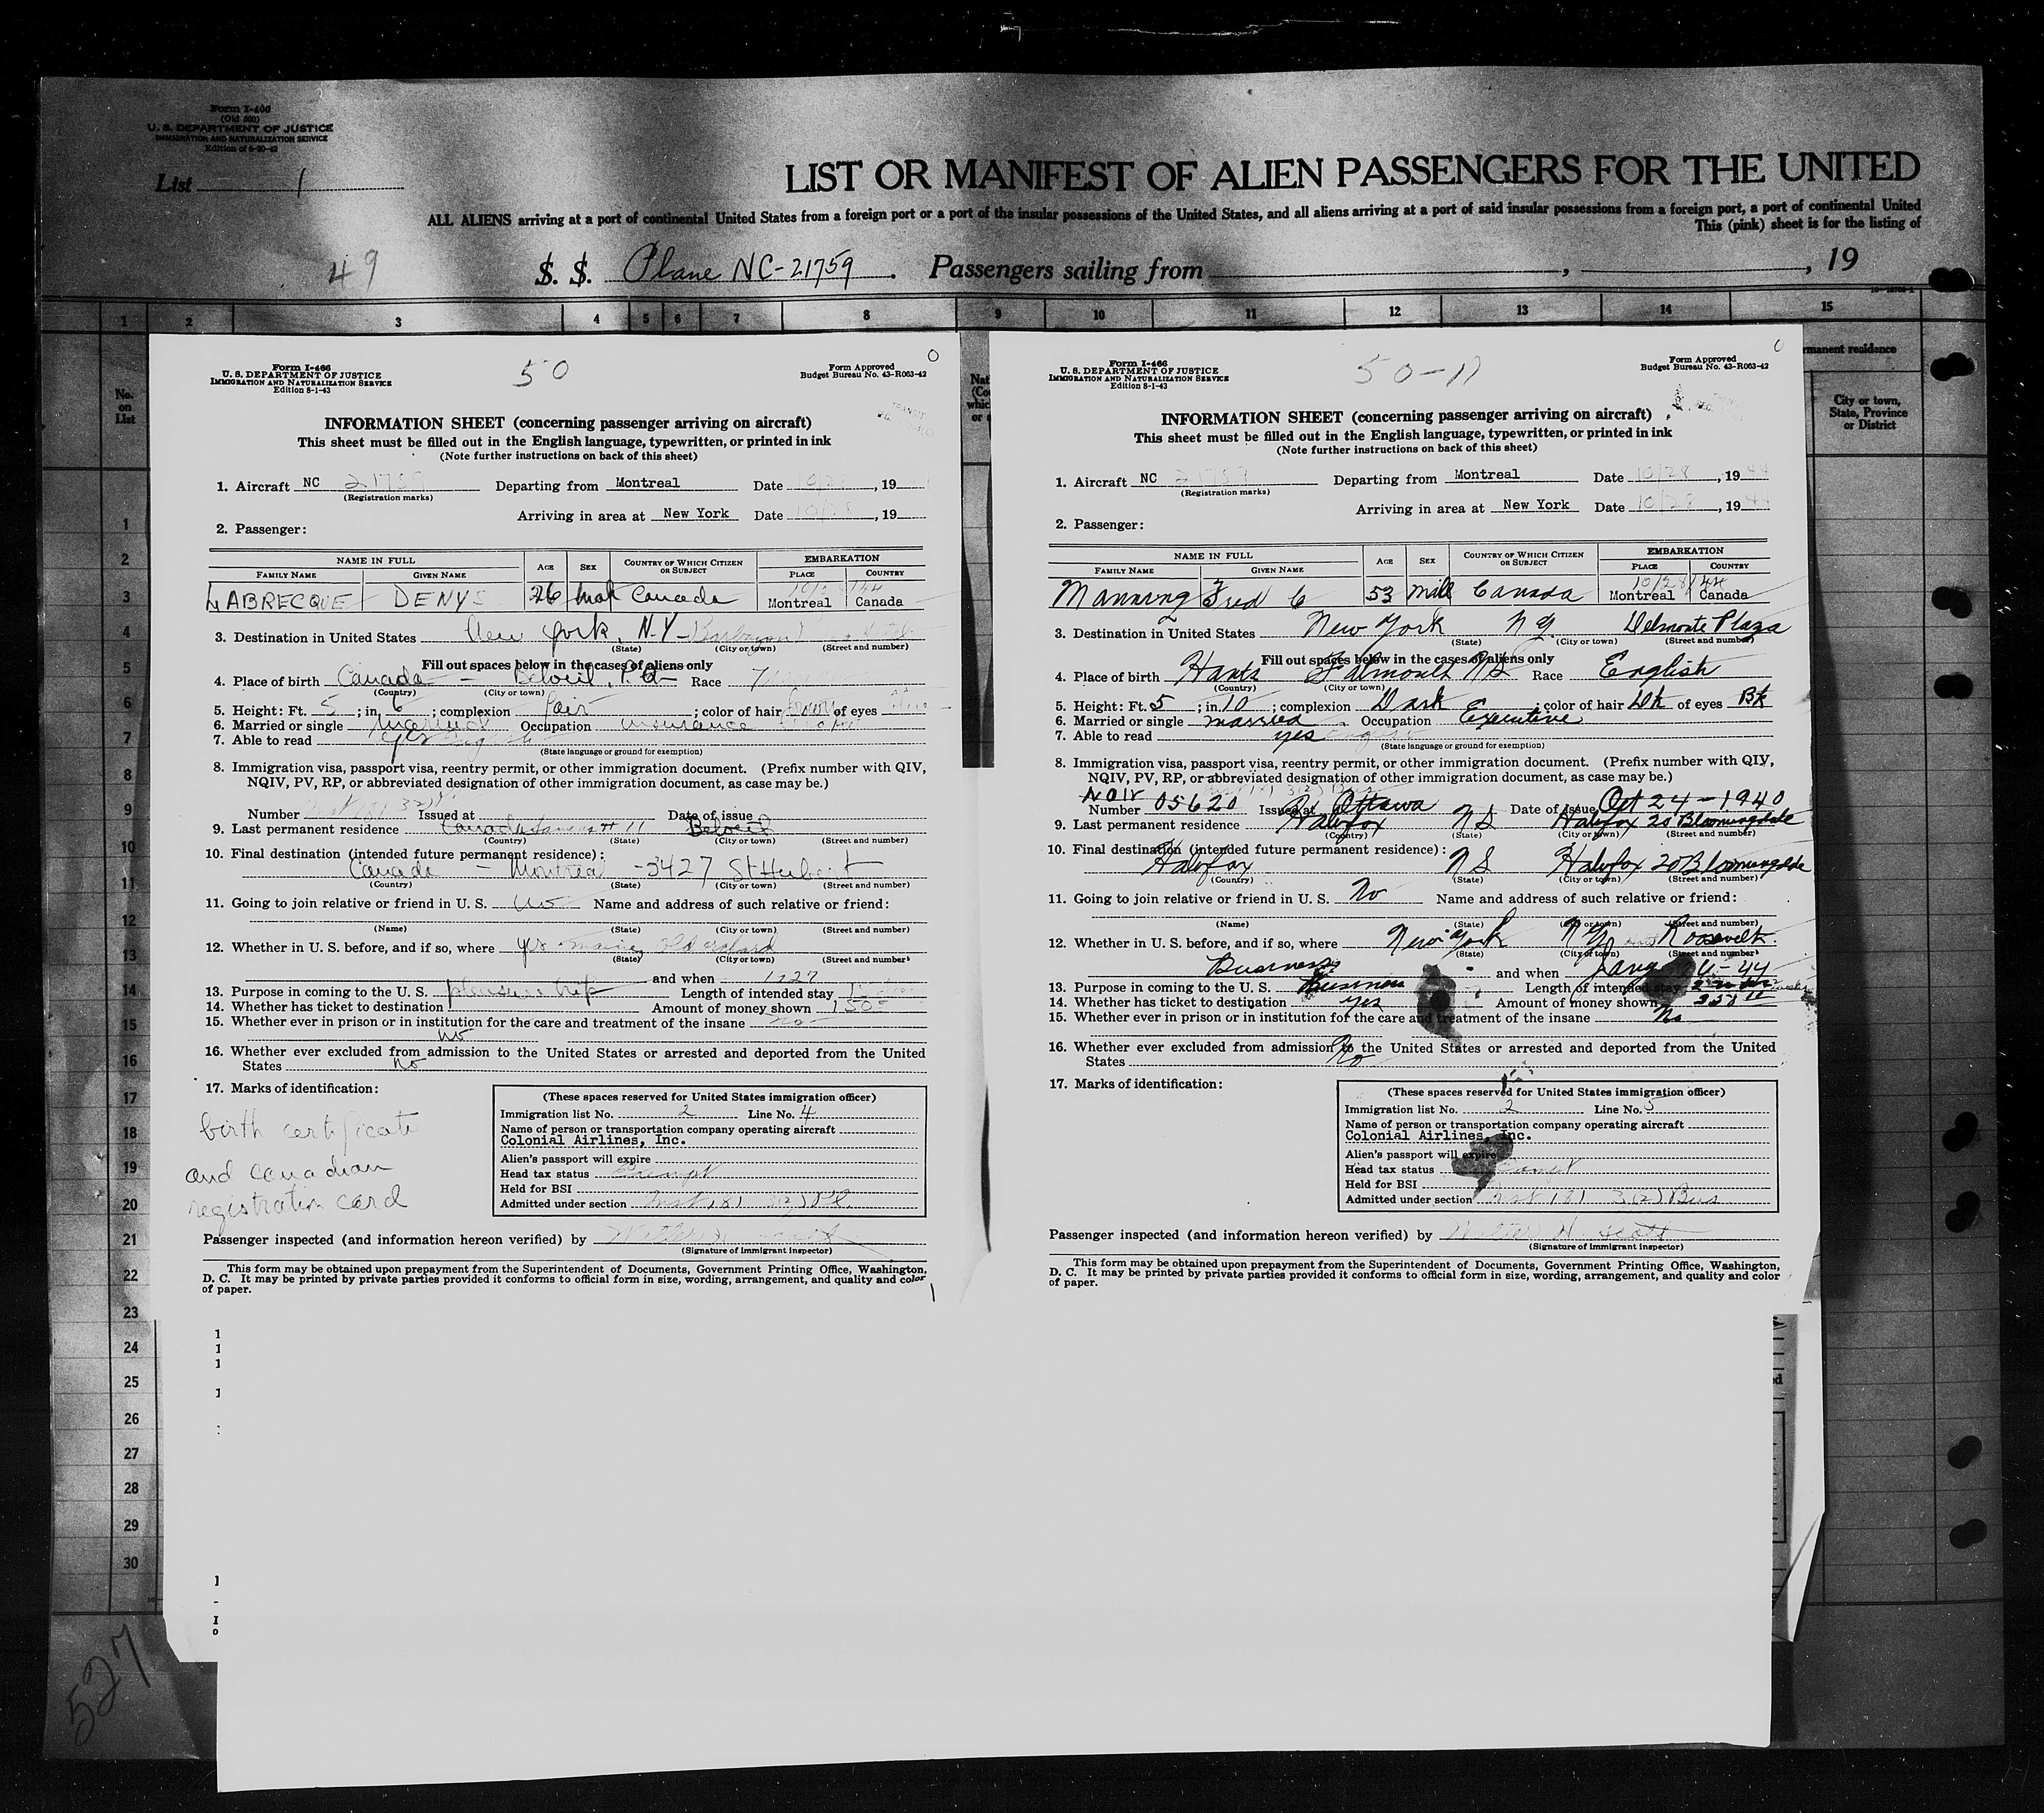 Form I-466
(Old 500)
U. S. DEPARTMENT OF JUSTICE
IMMIGRATION AND NATURALIZATION SERVICE
Edition of 6-20-42
List 1
LIST OR MANIFEST OF ALIEN PASSENGERS FOR THE UNITED
ALL ALIENS arriving at a port of continental United States from a foreign port or a port of the insular possessions of the United States, and all aliens arriving at a port of said insular possessions from a foreign port, a port of continental United
This (pink) sheet is for the listing of
49 S. S. Plane NC-21759. Passengers sailing from , , 19
1 2 3 4 5 6 7 8 9 10 11 12 13 14 15
No. on List
City or town, State, Province or District
Form I-466
U. S. DEPARTMENT OF JUSTICE
IMMIGRATION AND NATURALIZATION SERVICE
Edition 8-1-43
50
Form Approved
Budget Bureau No. 43-R063-42
INFORMATION SHEET (concerning passenger arriving on aircraft)
This sheet must be filled out in the English language, typewritten, or printed in ink
(Note further instructions on back of this sheet)
1. Aircraft NC 21759 Departing from Montreal Date , 19
(Registration marks)
Arriving in area at New York Date 10/28, 19
2. Passenger:
NAME IN FULL AGE SEX COUNTRY OF WHICH CITIZEN OR SUBJECT EMBARKATION
FAMILY NAME GIVEN NAME PLACE COUNTRY
LABRECQUE DENYS 26 Canada Montreal Canada
3. Destination in United States New York, N.Y.
(State) (City or town) (Street and number)
Fill out spaces below in the cases of aliens only
4. Place of birth Canada - Beloeil, P.Q. Race
(Country) (City or town)
5. Height: Ft. 5; in. 6; complexion fair; color of hair brown of eyes
6. Married or single married Occupation insurance
7. Able to read yes English
(State language or ground for exemption)
8. Immigration visa, passport visa, reentry permit, or other immigration document. (Prefix number with QIV,
NQIV, PV, RP, or abbreviated designation of other immigration document, as case may be.)
Number Issued at Date of issue
9. Last permanent residence Canada Beloeil
(Country) (State) (City or town) (Street and number)
10. Final destination (intended future permanent residence):
Canada - Montreal - 3427 St Hubert
(Country) (State) (City or town) (Street and number)
11. Going to join relative or friend in U. S. no Name and address of such relative or friend:
(Name) (State) (City or town) (Street and number)
12. Whether in U. S. before, and if so, where yes maine old orchard
(State) (City or town) (Street and number)
and when 1927
13. Purpose in coming to the U. S. pleasure trip Length of intended stay
14. Whether has ticket to destination Amount of money shown 150
15. Whether ever in prison or in institution for the care and treatment of the insane no
no
16. Whether ever excluded from admission to the United States or arrested and deported from the United
States no
17. Marks of identification:
birth certificate
and canadian
registration card
(These spaces reserved for United States immigration officer)
Immigration list No. 2 Line No. 4
Name of person or transportation company operating aircraft
Colonial Airlines, Inc.
Alien's passport will expire
Head tax status Exempt
Held for BSI
Admitted under section Inst 181 3(2) Pl.
Passenger inspected (and information hereon verified) by Walter H. Scott
(Signature of immigrant inspector)
This form may be obtained upon prepayment from the Superintendent of Documents, Government Printing Office, Washington,
D. C. It may be printed by private parties provided it conforms to official form in size, wording, arrangement, and quality and color
of paper.
Form I-466
U. S. DEPARTMENT OF JUSTICE
IMMIGRATION AND NATURALIZATION SERVICE
Edition 8-1-43
50-11
Form Approved
Budget Bureau No. 43-R063-42
INFORMATION SHEET (concerning passenger arriving on aircraft)
This sheet must be filled out in the English language, typewritten, or printed in ink
(Note further instructions on back of this sheet)
1. Aircraft NC 21759 Departing from Montreal Date 10/28, 1944
(Registration marks)
Arriving in area at New York Date 10/28, 1944
2. Passenger:
NAME IN FULL AGE SEX COUNTRY OF WHICH CITIZEN OR SUBJECT EMBARKATION
FAMILY NAME GIVEN NAME PLACE COUNTRY
10/28/44
Manning Fred C 53 male Canada Montreal Canada
3. Destination in United States New York NY Delmonte Plaza
(State) (City or town) (Street and number)
Fill out spaces below in the cases of aliens only
4. Place of birth Hants Falmouth NS Race English
(Country) (City or town)
5. Height: Ft. 5; in. 10; complexion Dark; color of hair Dk of eyes Bk
6. Married or single married Occupation Executive
7. Able to read yes English
(State language or ground for exemption)
8. Immigration visa, passport visa, reentry permit, or other immigration document. (Prefix number with QIV,
NQIV, PV, RP, or abbreviated designation of other immigration document, as case may be.)
Number 05620 Issued at Ottawa Date of issue Oct 24-1940
9. Last permanent residence Halifax NS Halifax 20 Bloomingdale
(Country) (State) (City or town) (Street and number)
10. Final destination (intended future permanent residence):
Halifax NS Halifax 20 Bloomingdale
(Country) (State) (City or town) (Street and number)
11. Going to join relative or friend in U. S. No Name and address of such relative or friend:
(Name) (State) (City or town) (Street and number)
12. Whether in U. S. before, and if so, where New York NY Roosevelt
(State) (City or town) (Street and number)
Business and when
13. Purpose in coming to the U. S. Business Length of intended stay
14. Whether has ticket to destination yes Amount of money shown
15. Whether ever in prison or in institution for the care and treatment of the insane No
16. Whether ever excluded from admission to the United States or arrested and deported from the United
States No
17. Marks of identification:
(These spaces reserved for United States immigration officer)
Immigration list No. 2 Line No. 5
Name of person or transportation company operating aircraft
Colonial Airlines, Inc.
Alien's passport will expire
Head tax status Exempt
Held for BSI
Admitted under section Inst 181 3(2) Bus
Passenger inspected (and information hereon verified) by Walter H. Scott
(Signature of immigrant inspector)
This form may be obtained upon prepayment from the Superintendent of Documents, Government Printing Office, Washington,
D. C. It may be printed by private parties provided it conforms to official form in size, wording, arrangement, and quality and color
of paper.
1
2
3
4
5
6
7
8
9
10
11
12
13
14
15
16
17
18
19
20
21
22
23
24
25
26
27
28
29
30
527